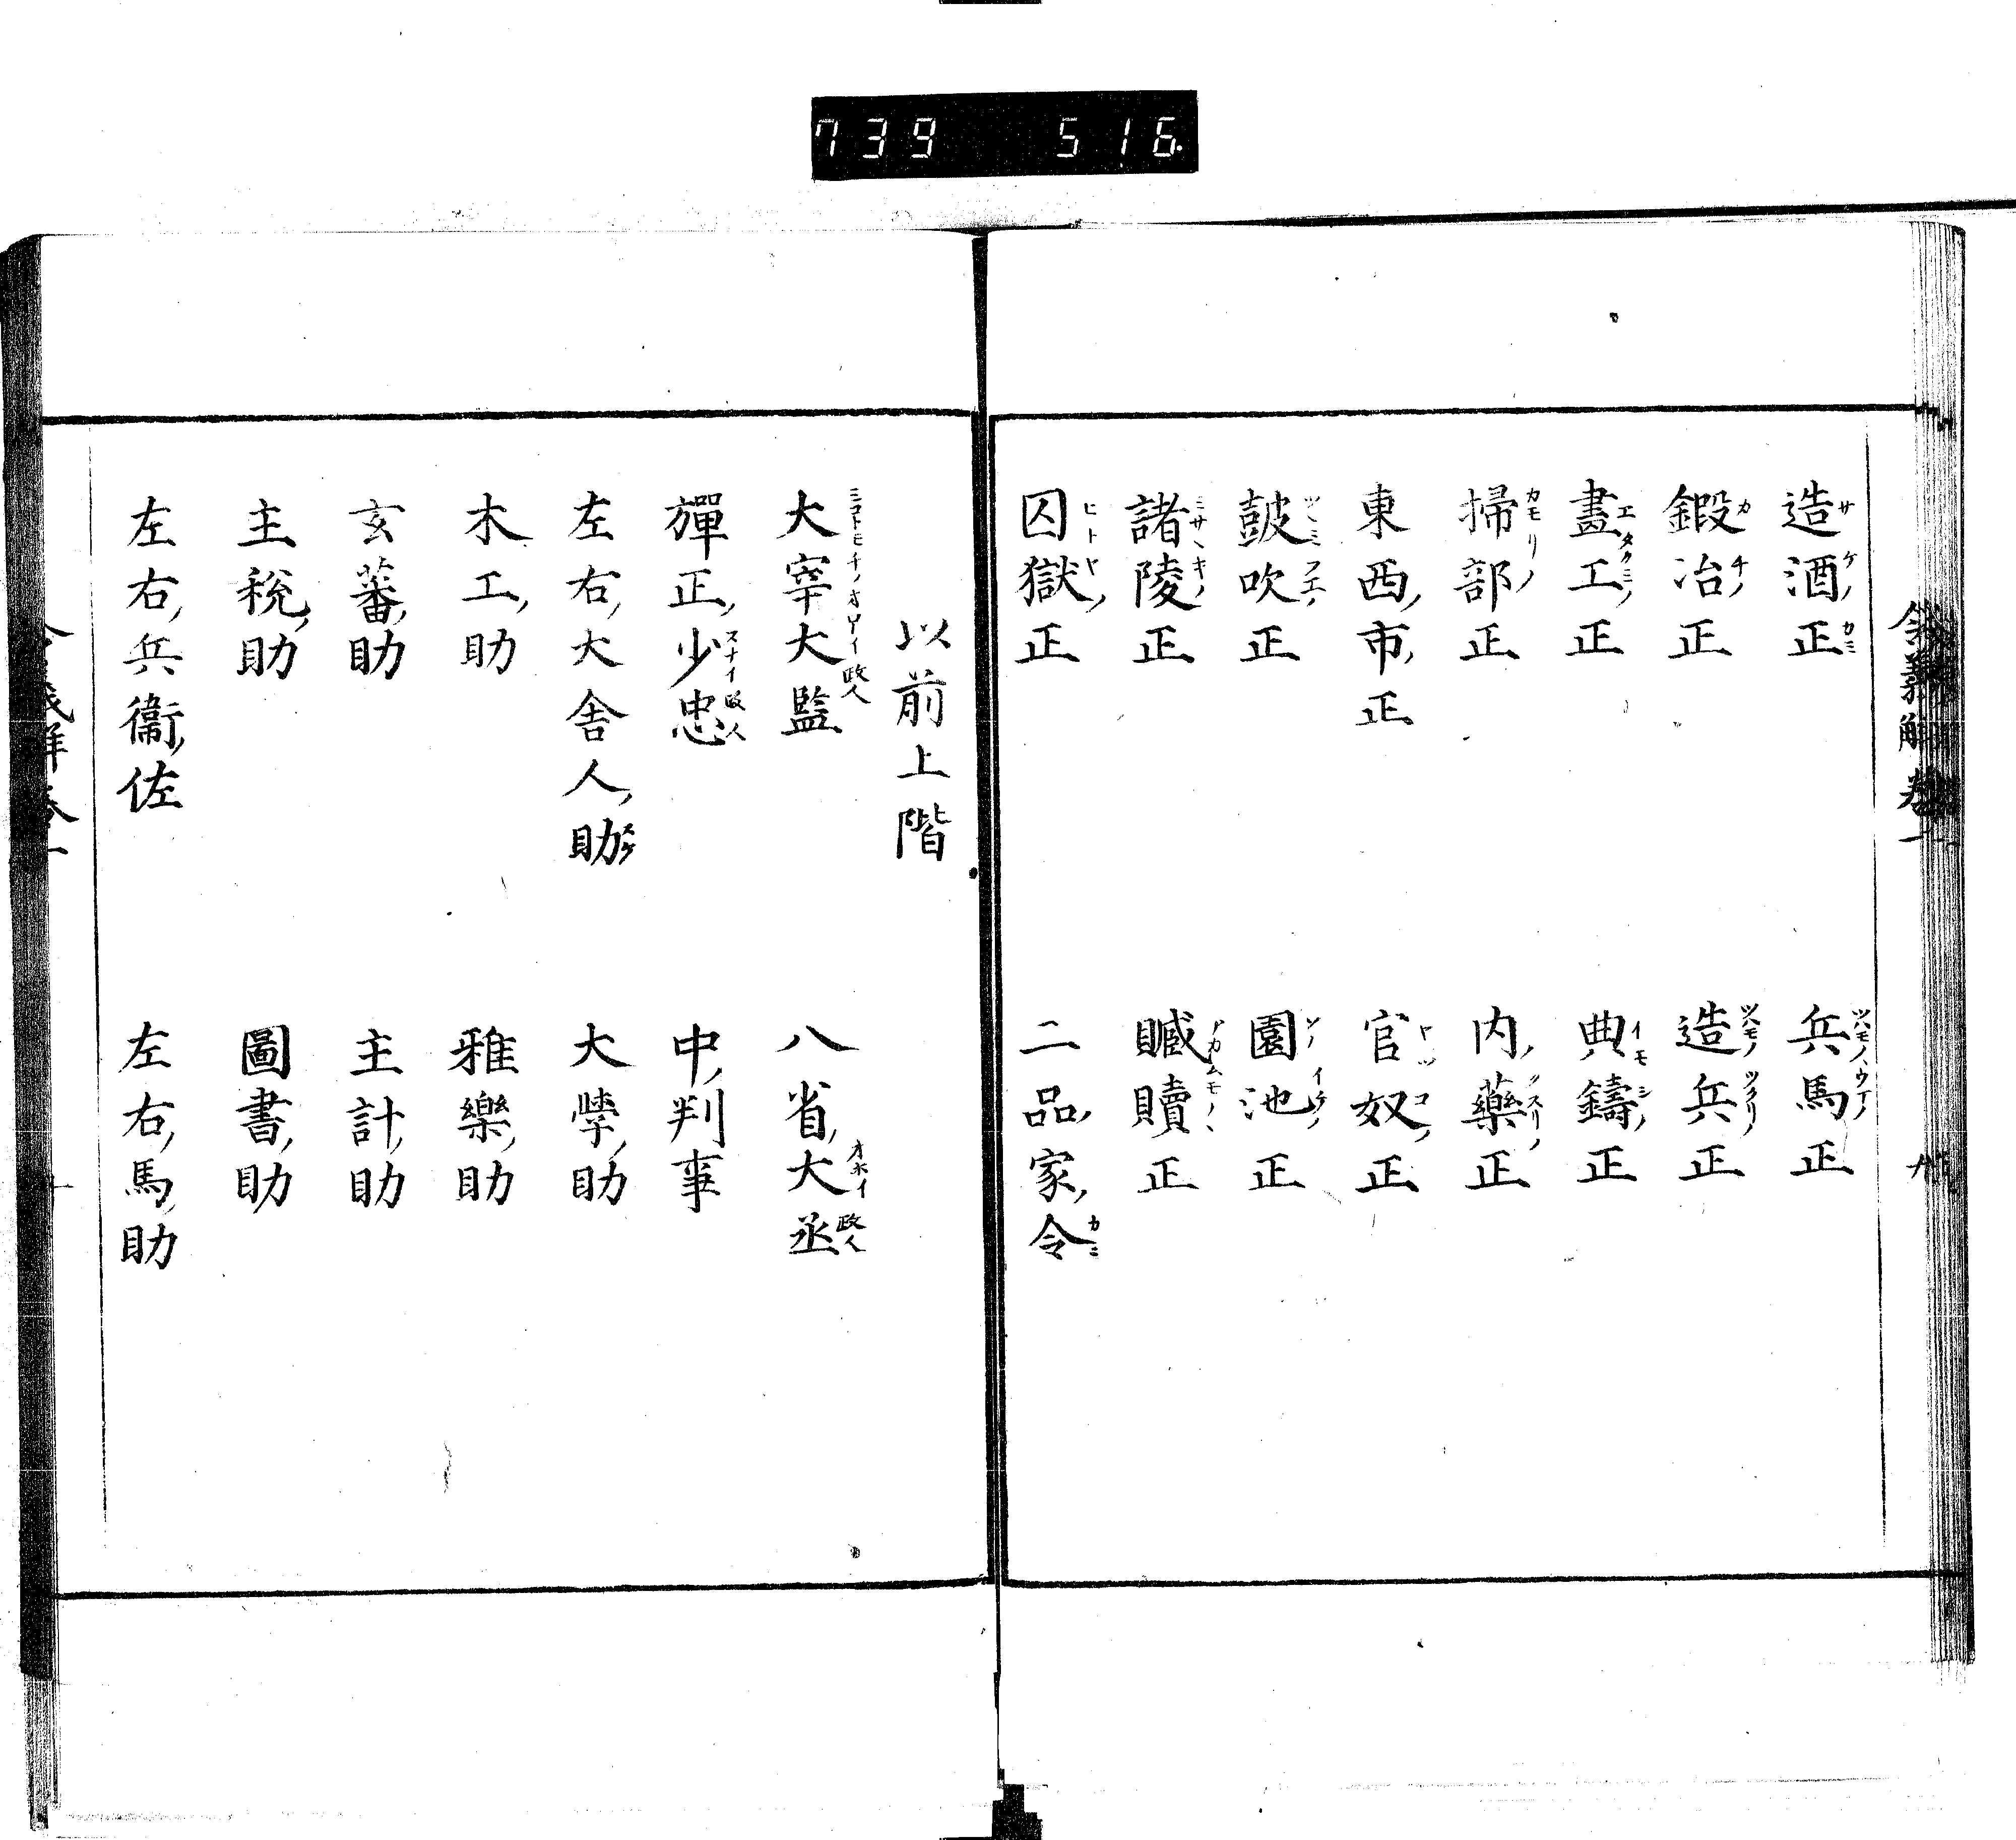 739 516
令義解卷一
造酒正 兵馬正
鍛冶正 造兵正
畫工正 典鑄正
掃部正 内藥正
東西市正 官奴正
鼓吹正 園池正
諸陵正 贓贖正
囚獄正 二品家令
以前上階
大宰大監 八省大丞
彈正少忠 中判事
左右大舍人助 大學助
木工助 雅樂助
玄蕃助 主計助
主稅助 圖書助
左右兵衞佐 左右馬助